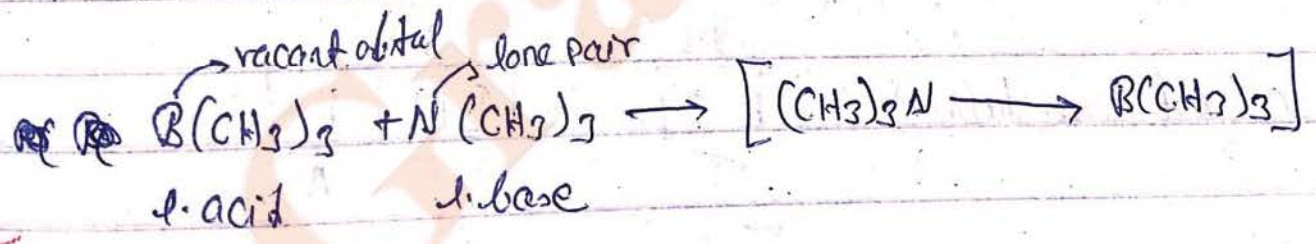 vacant obital lone pair
B(CH3)3 + N(CH3)3 ⟶ [(CH3)3N ⟶ B(CH3)3]
l. acid l. base